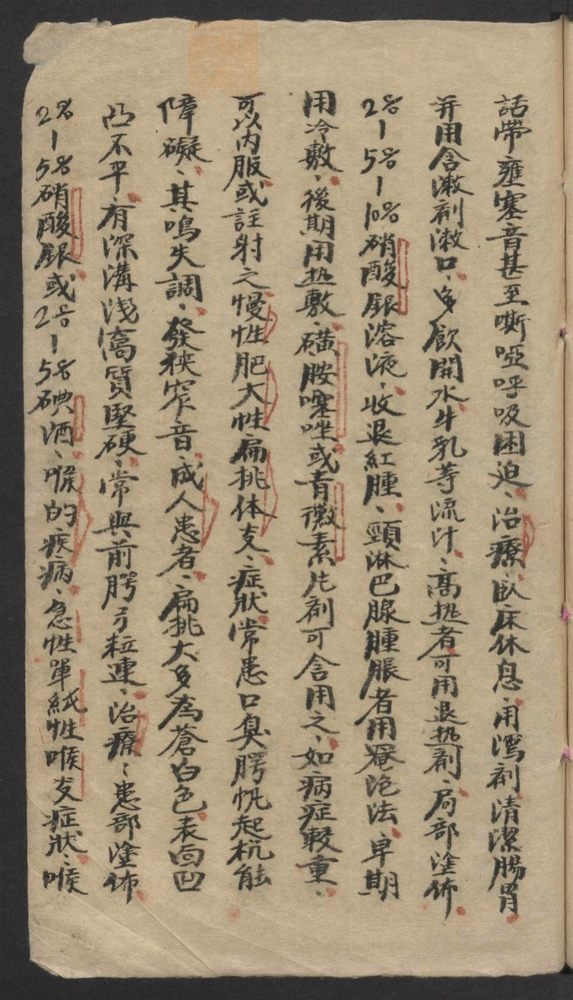 話帶壅塞音甚至嘶啞呼吸困迫、治療、臥床休息、用瀉剤清潔腸胃
并用含漱剤漱口、多飲開水牛乳等流汁、高热者可用退热剤、局部塗佈
2%—5%—10%硝酸銀溶液、收退紅腫、頸淋巴腺腫脹者用罨沲法、早期
用冷敷、後期用热敷、磺胺噻唑或青黴素片剤可含用之、如病症較重、
可以内服或註射之、慢性肥大性扁挑体炎、症狀、常患口臭腭帆起机能
障礙、其鳴失調、發狹窄音、成人患者、扁挑大多為蒼白色、表面凹
凸不平、有深溝浅窩質堅硬、常與前腭弓粒連、治療、患部塗佈、
2%—5%硝酸銀或2%—5%碘酒、喉的疾病、急性單純性喉炎症狀、喉